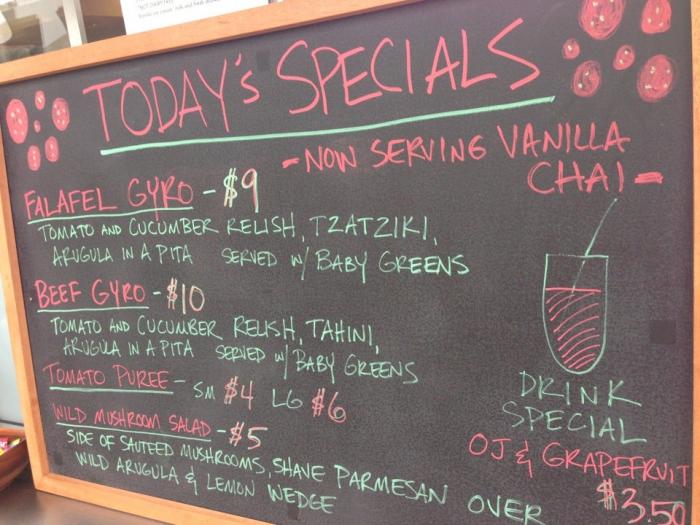 TODAY'S SPECIALS
-NOW SERVING VANILLA
CHAI-
FALAFEL GYRO - $9
TOMATO AND CUCUMBER RELISH, TZATZIKI,
ARUGULA IN A PITA SERVED W/ BABY GREENS
BEEF GYRO - $10
TOMATO AND CUCUMBER RELISH, TAHINI,
ARUGULA IN A PITA SERVED W/ BABY GREENS
TOMATO PUREE - SM $4 LG $6
WILD MUSHROOM SALAD - $5
SIDE OF SAUTEED MUSHROOMS, SHAVE PARMESAN OVER
WILD ARUGULA & LEMON WEDGE
DRINK
SPECIAL
OJ & GRAPEFRUIT
$3.50